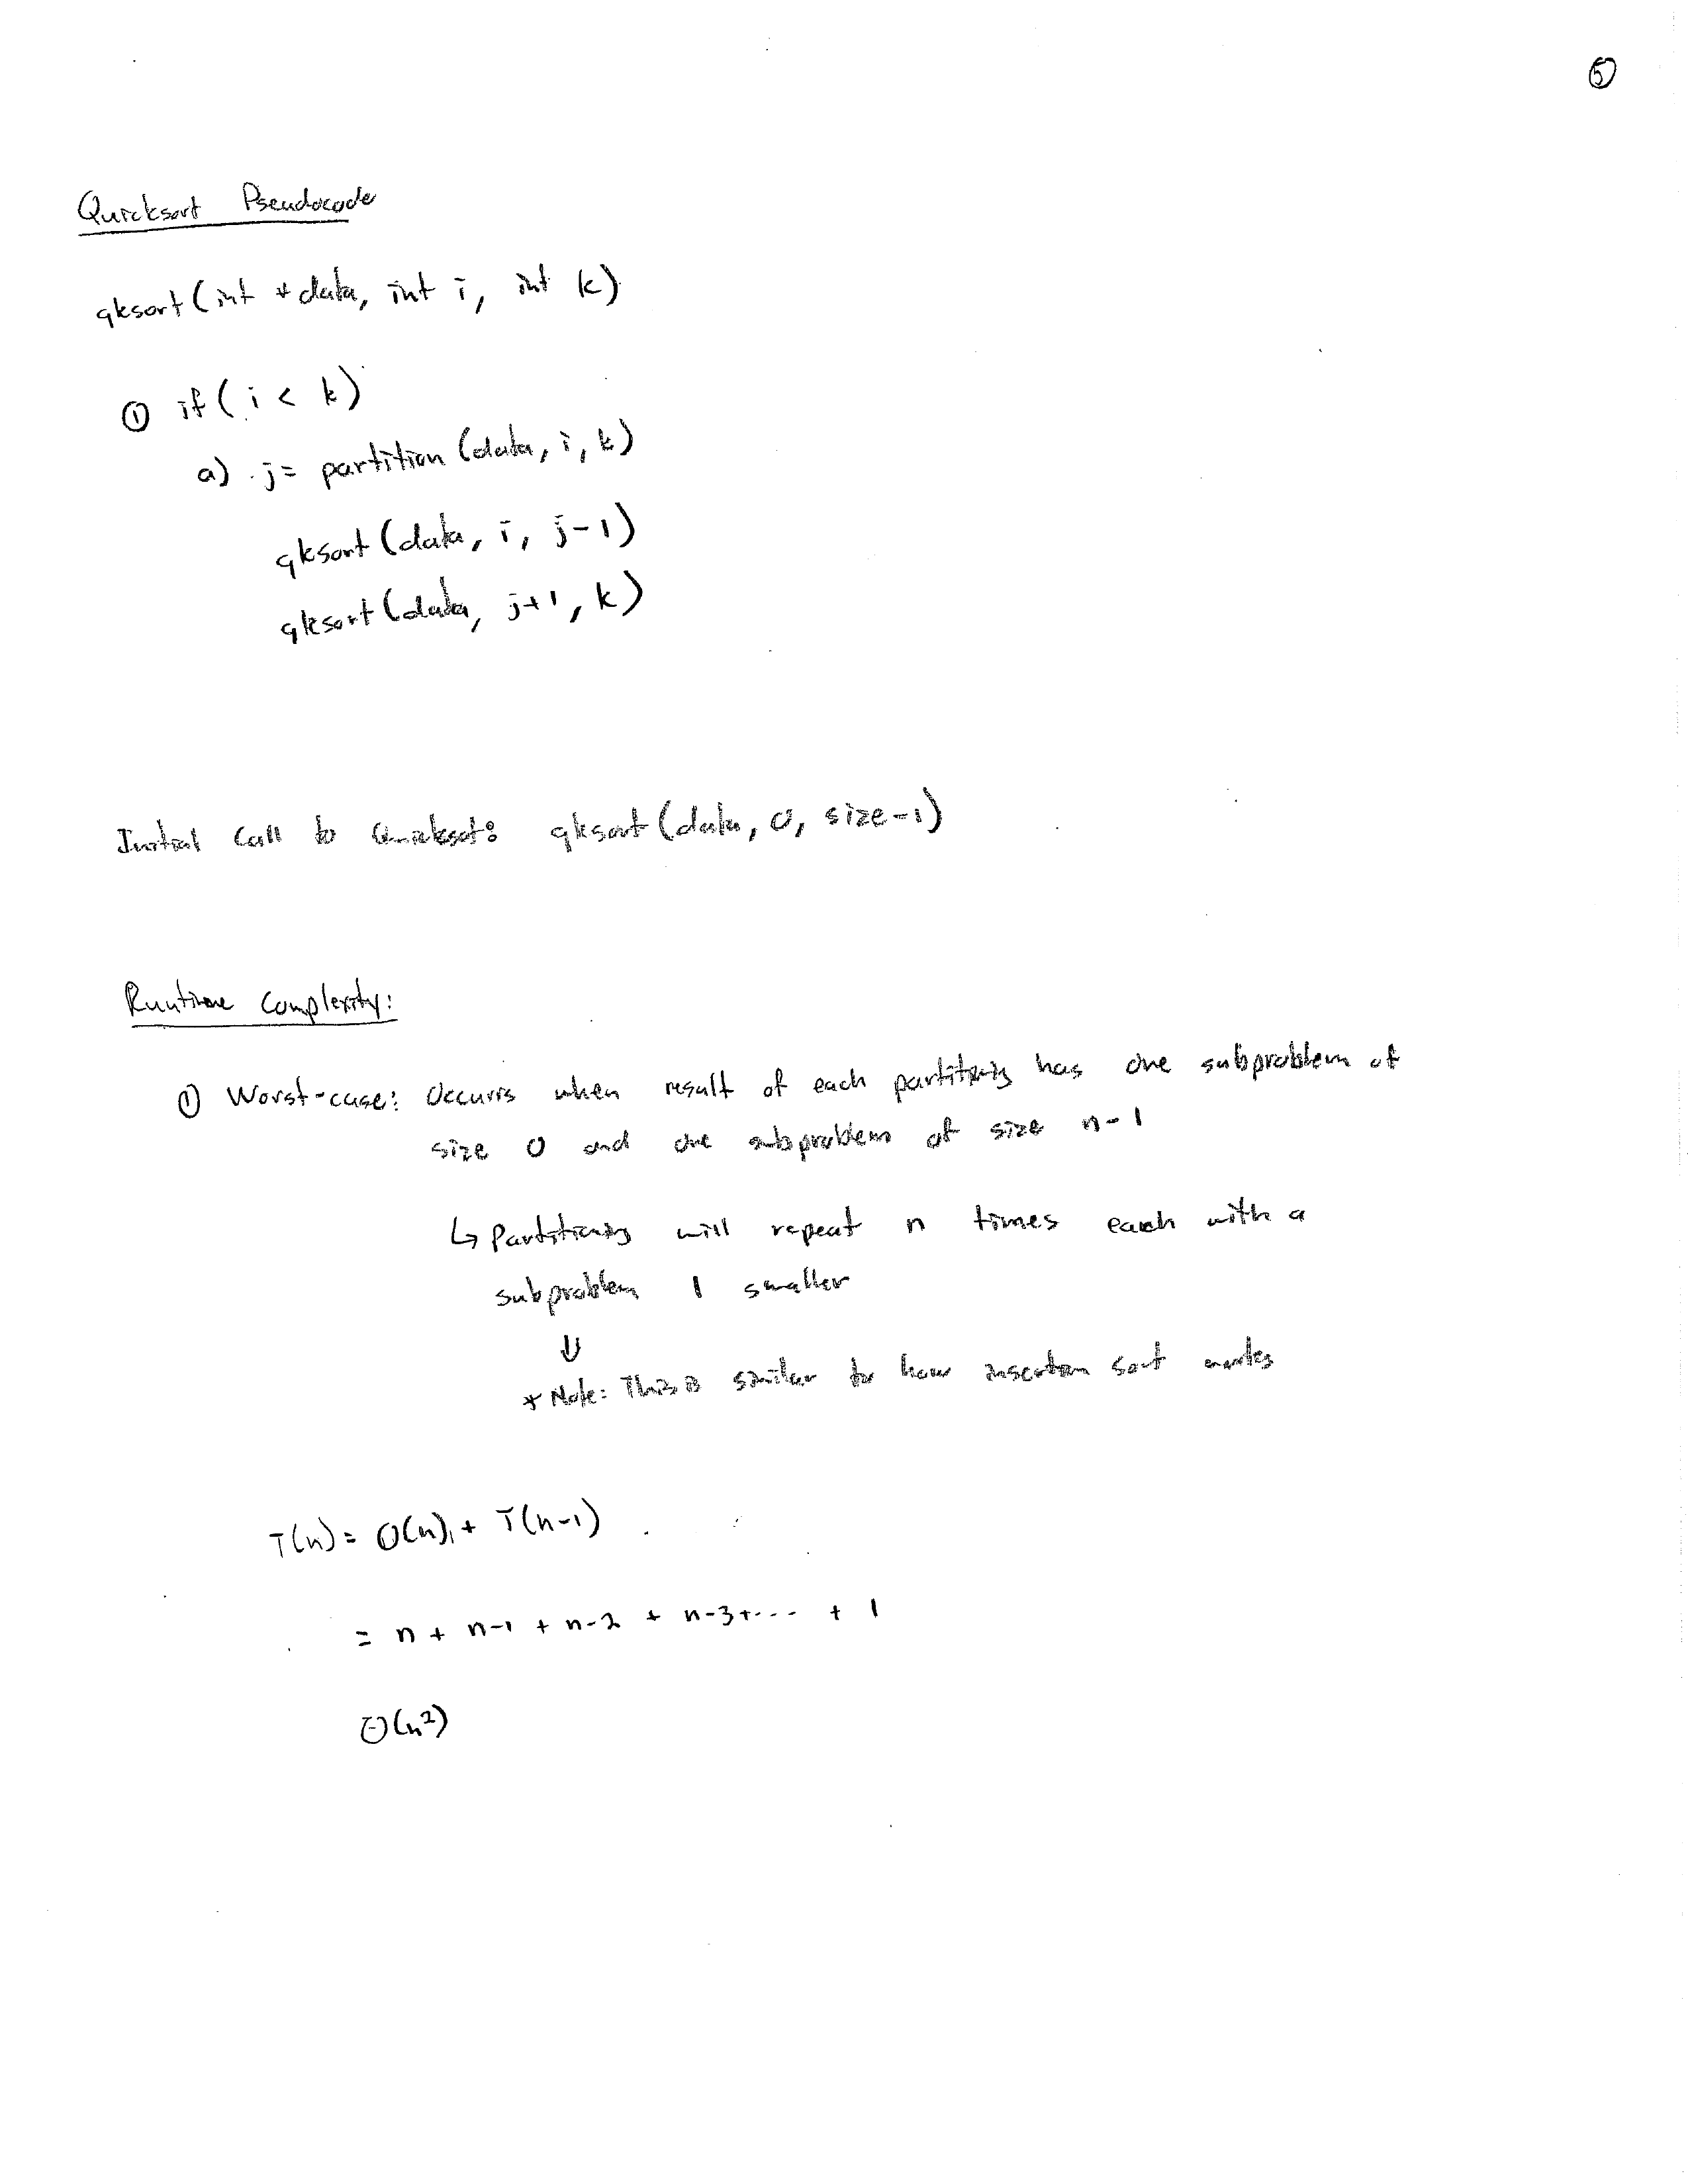 5
Quicksort Pseudocode
qksort(int *data, int i, int k)
① if(i < k)
a) j= partition(data, i, k)
qksort(data, i, j-1)
qksort(data, j+1, k)
Initial Call to Quicksort: qksort(data, 0, size-1)
Runtime Complexity:
① Worst-case: Occurrs when result of each partitioning has one subproblem of
size 0 and one subproblem of size n-1
↳ Partitioning will repeat n times each with a
subproblem 1 smaller
⇓
* Note: This is similar to how insertion sort works
T(n) = Θ(n) + T(n-1)
= n + n-1 + n-2 + n-3 + ... + 1
Θ(n²)